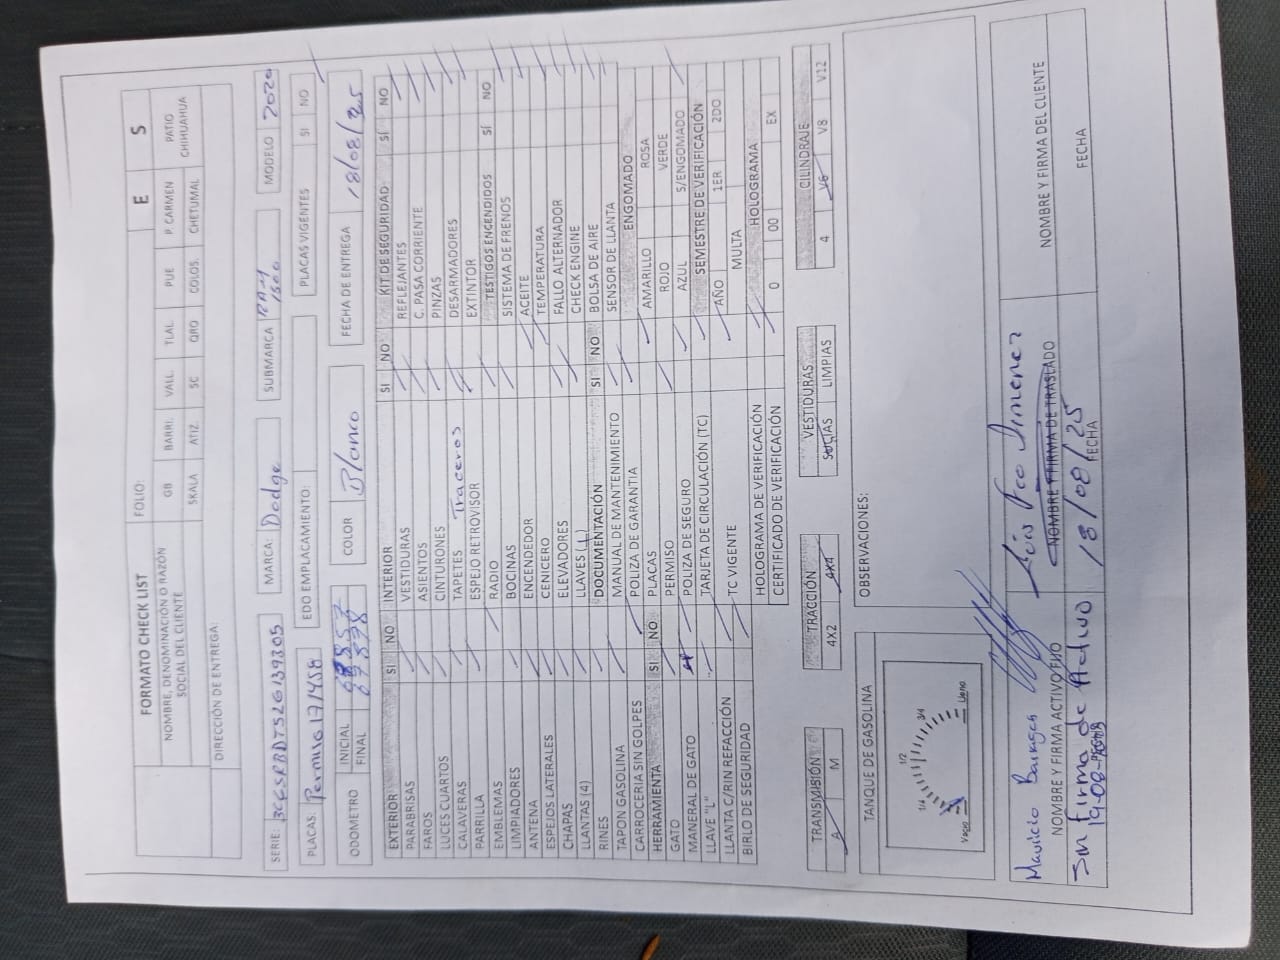 FORMATO CHECK LIST
FOLIO:
E S
NOMBRE, DENOMINACIÓN O RAZÓN SOCIAL DEL CLIENTE
GB BARRI. VALL. TLAL. PUE P. CARMEN PATIO
SKALA ATIZ. SC QRO COLOS. CHETUMAL CHIHUAHUA
DIRECCIÓN DE ENTREGA:
SERIE: MARCA: Dodge SUBMARCA RAM 1500 MODELO 2020
PLACAS: Permiso 171458 EDO EMPLACAMIENTO: PLACAS VIGENTES SI NO
ODOMETRO INICIAL COLOR Blanco FECHA DE ENTREGA 18/08/2025
FINAL
EXTERIOR SI NO
PARABRISAS
FAROS
LUCES CUARTOS
CALAVERAS
PARRILLA
EMBLEMAS
LIMPIADORES
ANTENA
ESPEJOS LATERALES
CHAPAS
LLANTAS (4)
RINES
TAPON GASOLINA
CARROCERIA SIN GOLPES
HERRAMIENTA SI NO
GATO
MANERAL DE GATO
LLAVE "L"
LLANTA C/RIN REFACCIÓN
BIRLO DE SEGURIDAD
INTERIOR SI NO
VESTIDURAS
ASIENTOS
CINTURONES
TAPETES Traceros
ESPEJO RETROVISOR
RADIO
BOCINAS
ENCENDEDOR
CENICERO
ELEVADORES
LLAVES (1)
DOCUMENTACIÓN SI NO
MANUAL DE MANTENIMIENTO
POLIZA DE GARANTIA
PLACAS
PERMISO
POLIZA DE SEGURO
TARJETA DE CIRCULACIÓN (TC)
TC VIGENTE
HOLOGRAMA DE VERIFICACIÓN
CERTIFICADO DE VERIFICACIÓN
KIT DE SEGURIDAD SÍ NO
REFLEJANTES
C. PASA CORRIENTE
PINZAS
DESARMADORES
EXTINTOR
TESTIGOS ENCENDIDOS SÍ NO
SISTEMA DE FRENOS
ACEITE
TEMPERATURA
FALLO ALTERNADOR
CHECK ENGINE
BOLSA DE AIRE
SENSOR DE LLANTA
ENGOMADO
AMARILLO ROSA
ROJO VERDE
AZUL S/ENGOMADO
SEMESTRE DE VERIFICACIÓN
AÑO 1ER 2DO
MULTA
HOLOGRAMA
0 00 EX
TRANSMISIÓN TRACCIÓN VESTIDURAS CILINDRAJE
A M 4X2 4X4 SUCIAS LIMPIAS 4 V6 V8 V12
TANQUE DE GASOLINA
Vacio 1/4 1/2 3/4 Lleno
OBSERVACIONES:
Mauricio
NOMBRE Y FIRMA ACTIVO FIJO
Sin firma de Activo
19-08-
Luis Fco Jimenez
NOMBRE Y FIRMA DE TRASLADO
18/08/25
FECHA
NOMBRE Y FIRMA DEL CLIENTE
FECHA